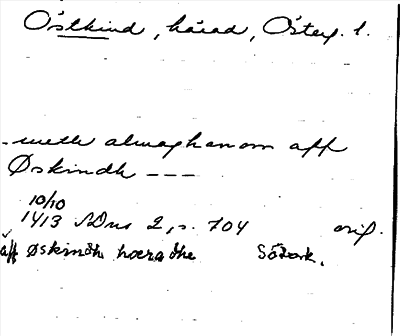 Östkind, härad, Österg. l.
- meth almoghanom aff
Øskindh ---
10/10
1413 SDns 2, s. 704 orig.
aff Øskindh hæradhe Södork.